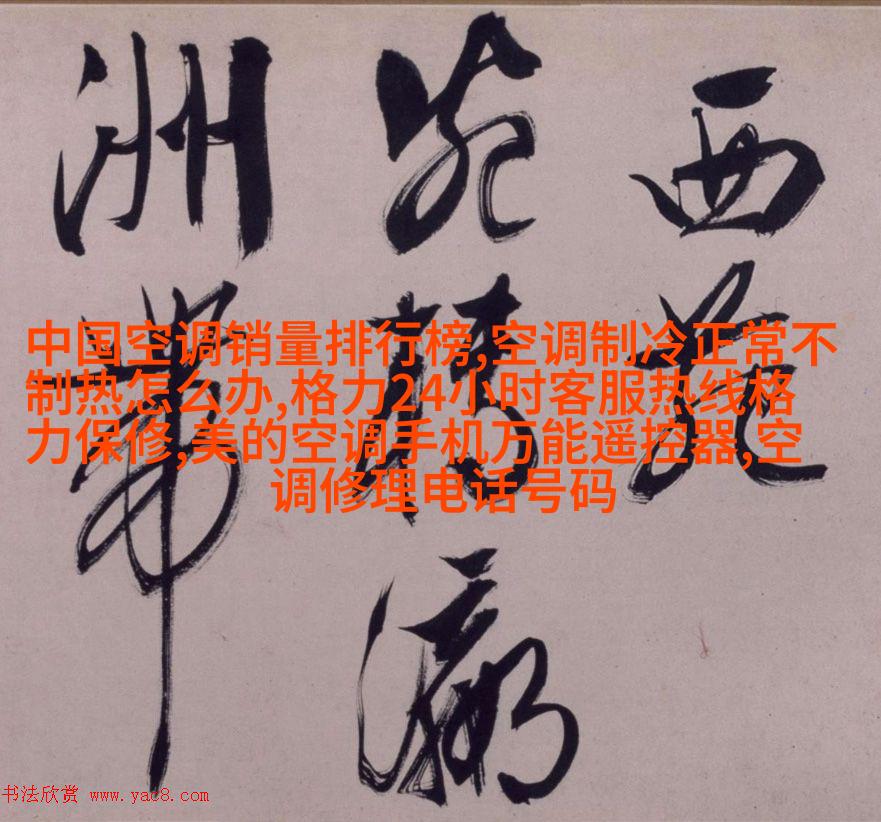 西苑
瀛
洲帶
中国空调销量排行榜,空调制冷正常不
制热怎么办,格力24小时客服热线格
力保修,美的空调手机万能遥控器,空
调修理电话号码
书法欣赏 www.yac8.com